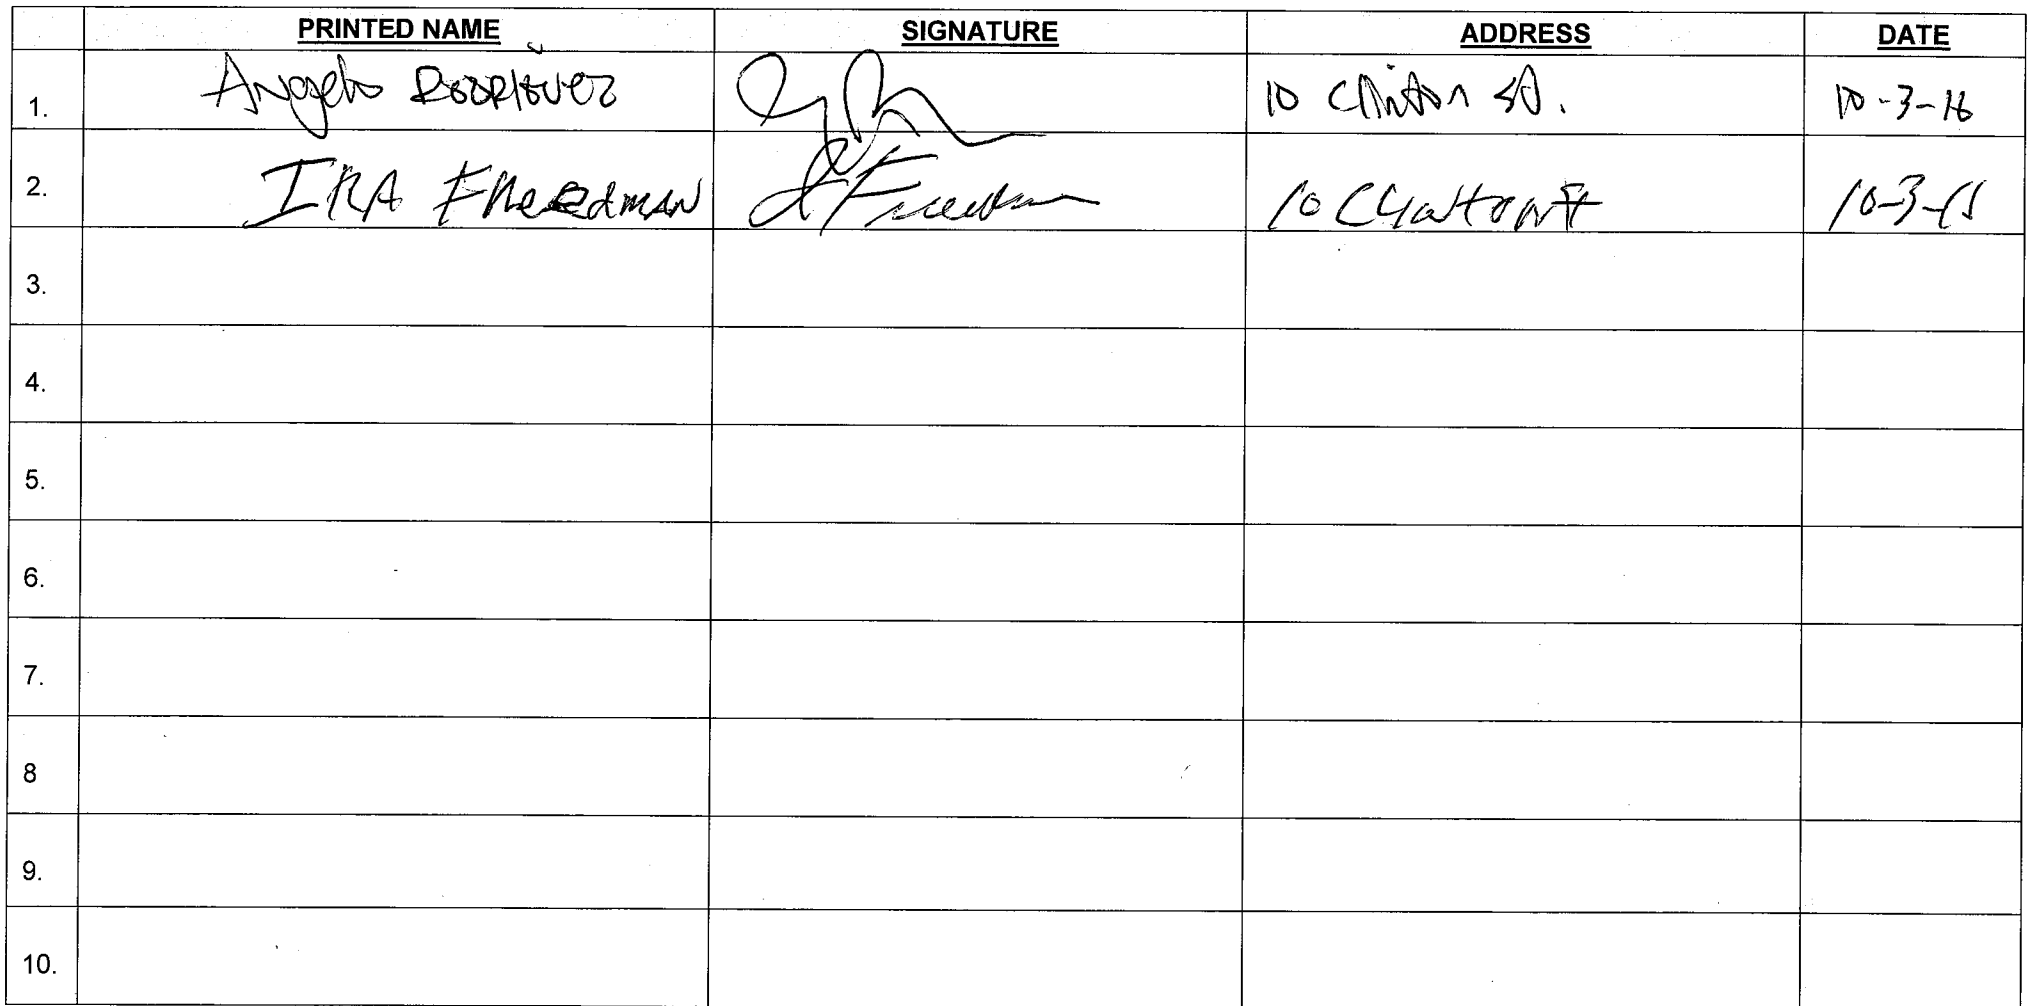 PRINTED NAME SIGNATURE ADDRESS DATE
1. Angelo Rodriguez 10 Clinton St. 10-3-16
2. IRA Freedman I Freedman 10 Clinton St
3.
4.
5.
6.
7.
8
9.
10.